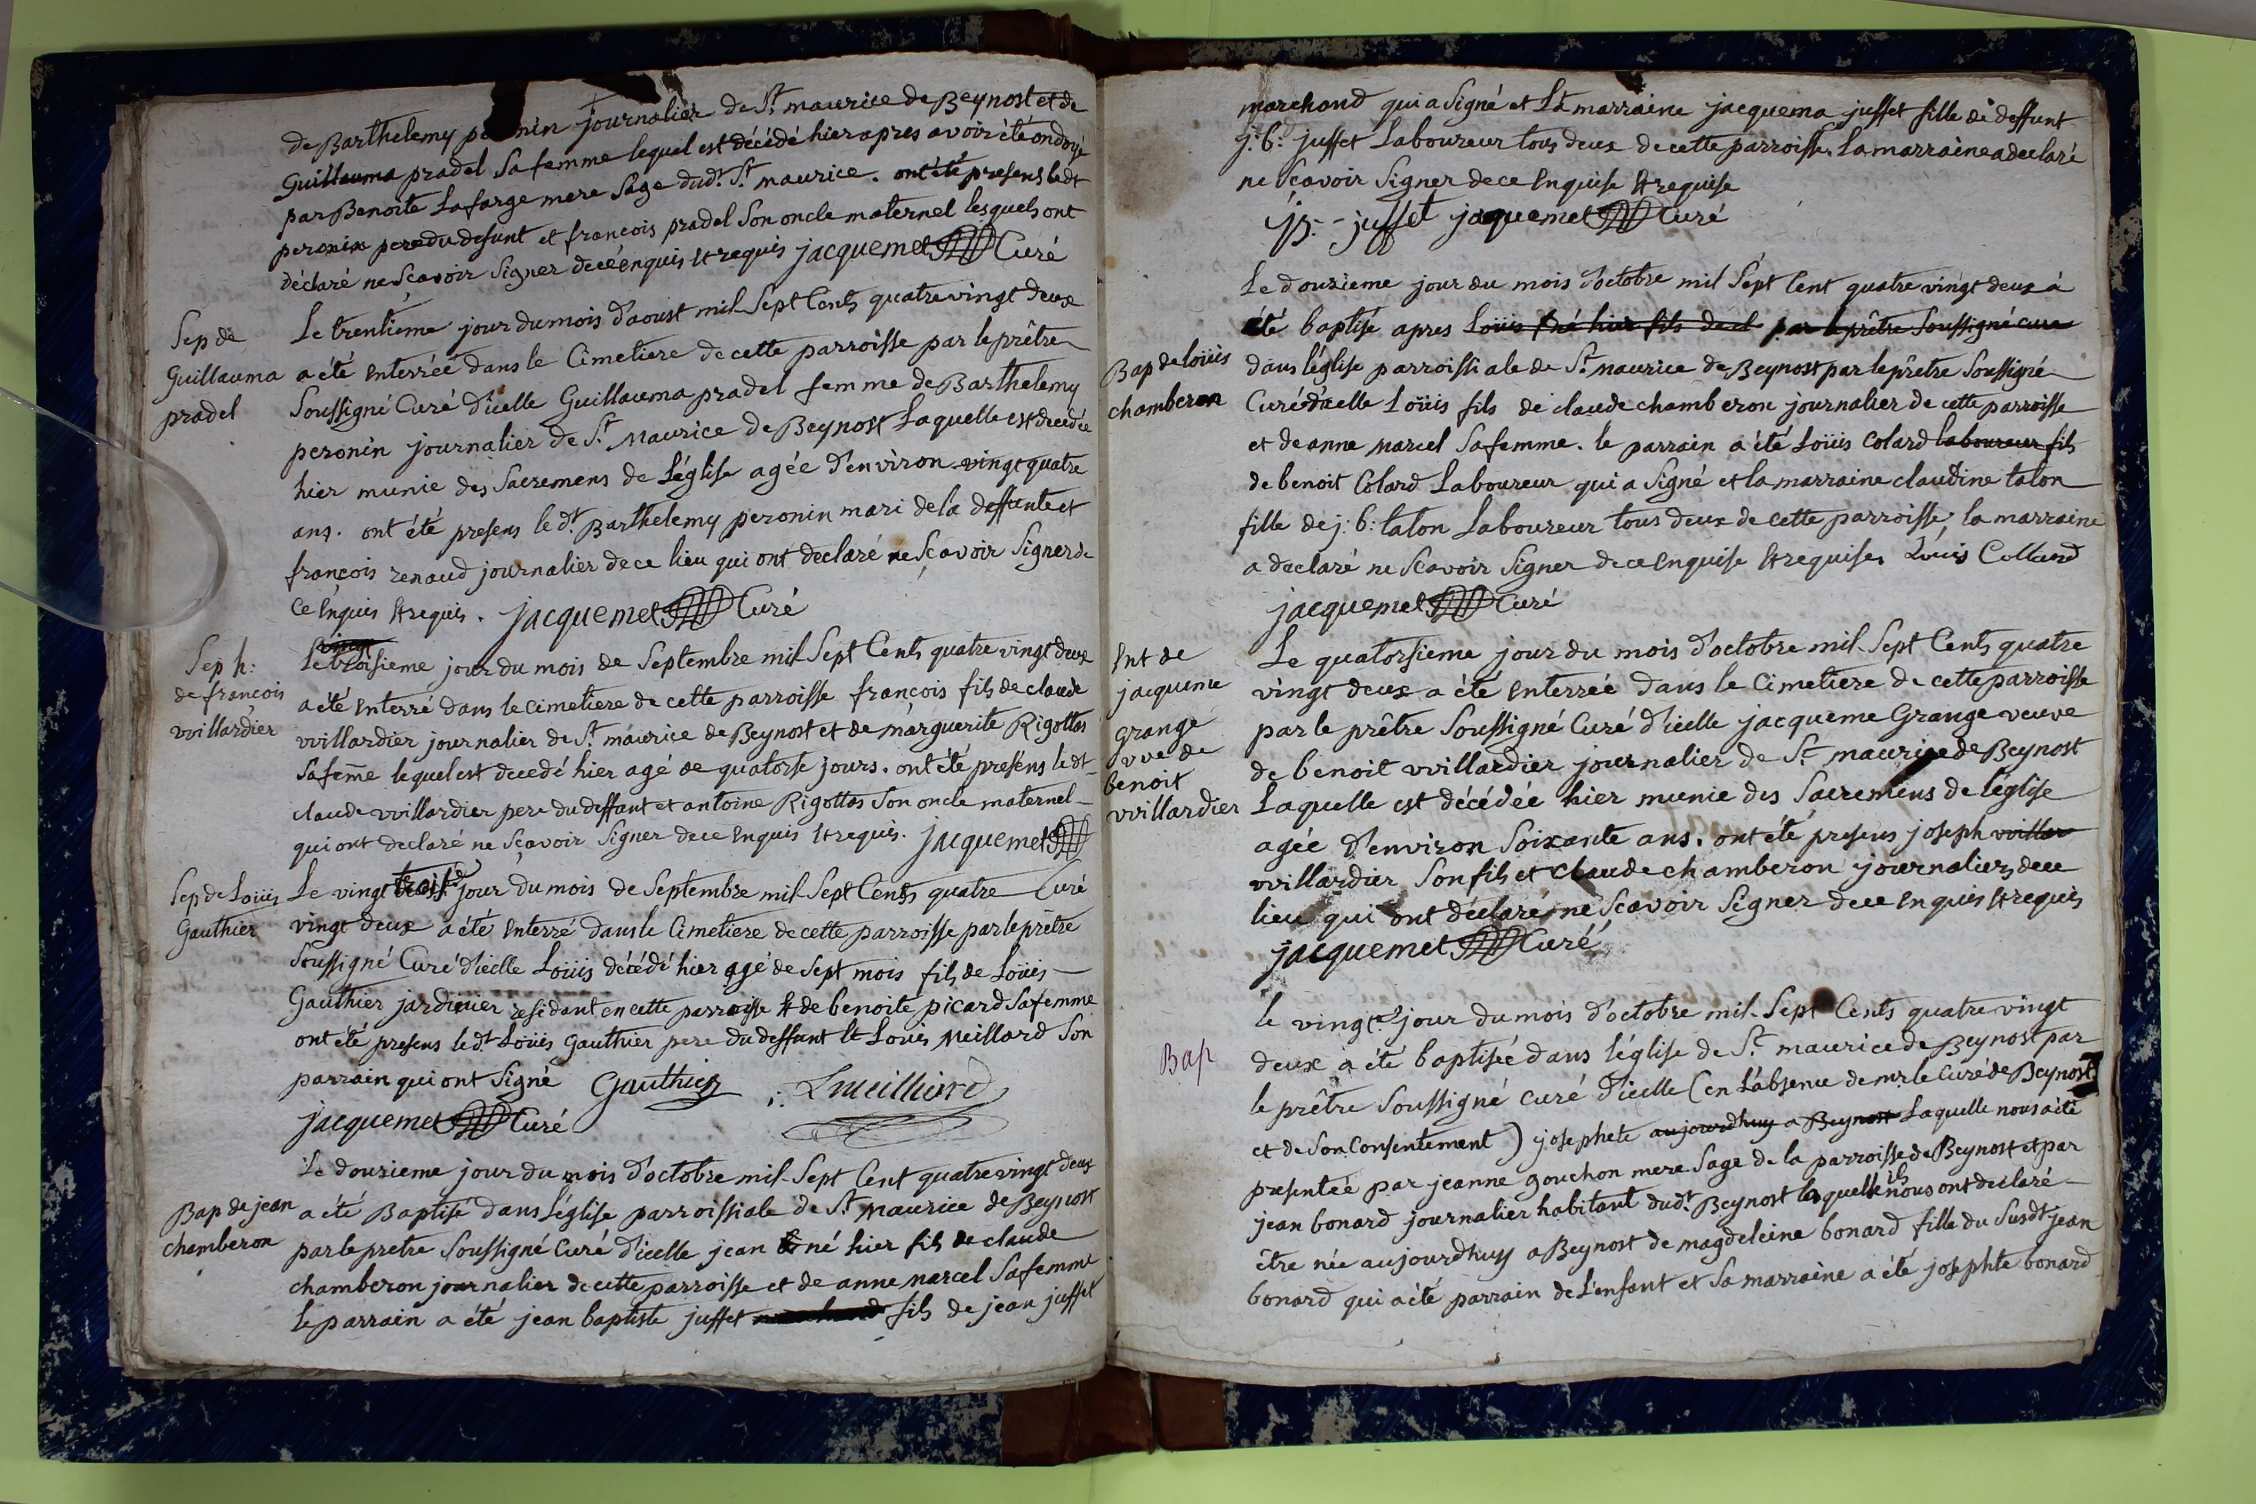 de Barthelemy peronin journalier de St maurice de Beynost et de
Guillauma pradel Sa femme lequel est décédé hier apres avoir été ondoyé
par Benoite Lafarge mere Sage dudt St maurice. ont été presens ledt
peronin pere du defunt et françois pradel Son oncle maternel lesquels ont
déclaré ne Scavoir Signer de ce enquis et requis jacquemet Curé
Sep de
Guillauma
pradel
Le trentieme jour du mois d'aoust mil Sept Cents quatre vingt deux
a été enterréé dans le Cimetiere de cette parroisse par le prêtre
Soussigné Curé d'icelle Guillauma pradel femme de Barthelemy
peronin journalier de St Maurice de Beynost Laquelle est decedée
hier munie des Sacremens de L'église agée d'environ vingt quatre
ans. ont été presens le dt Barthelemy peronin mari de la deffunte et
françois renaud journalier de ce lieu qui ont declaré ne Sçavoir Signer de
ce enquis et requis. jacquemet Curé
Sep h:
de françois
vvillardier
vingt
Le troisieme jour du mois de Septembre mil Sept Cents quatre vingt deux
a été enterré dans le cimetiere de cette parroisse françois fils de claude
vvillardier journalier de St maurice de Beynost et de marguerite Rigottos
Safeme lequel est decedé hier agé de quatorse jours. ont été preséns le dt
claude vvillardier pere du deffunt et antoine Rigottos Son oncle maternel
qui ont declaré ne Sçavoir Signer de ce enquis et requis. jacquemet
Curé
Sep de Loüis
Gauthier
Le vingt trois jour du mois de Septembre mil Sept Cents quatre
vingt deux a été enterré dans le Cimetiere de cette parroisse par le prêtre
Soussigné Curé d'icelle Loüis décédé hier agé de Sept mois fils de Loüis
Gauthier jardinier residant en cette parroisse et de benoite picard Safemme
ont été presens le dt Loüis Gauthier pere du deffunt et Louis Meillard Son
parrain qui ont Signé Gauthier Lmeilliard
jacquemet Curé
Bap de jean
chamberon
Le douzieme jour du mois d'octobre mil Sept Cent quatre vingt deux
a été Baptisé dans L'église parroissiale de St Maurice de Beynost
par le pretre Soussigné Curé d'icelle jean né hier fils de claude
chamberon journalier de cette parroisse et de anne marcel Safemme
le parrain a été jean baptiste juffet marchand fils de jean juffet
marchand qui a Signé et La marraine jacquema juffet fille de deffunt
j: b: juffet Laboureur tous deux de cette parroisse. La marraine a declaré
ne Scavoir Signer de ce enquise et requise
jb juffet jaquemet Curé
Bap de loüis
chamberon
Le douzieme jour du mois d'octobre mil Sept Cent quatre vingt deux à
été baptisé apres Loüis né hier fils de cl par le prêtre Soussigné cure
dans l'église parroissiale de St maurice de Beynost par le prêtre Soussigné
Curé d'icelle Loüis fils de claude chamberon journalier de cette parroisse
et de anne marcel Safemme. le parrain a été Loüis Colard laboureur fils
de benoit Colard Laboureur qui a Signé et la marraine claudine talon
fille de j: b: talon Laboureur tous deux de cette parroisse, la marraine
a declaré ne Scavoir Signer de ce enquise et requise. Louis Collard
jacquemet Curé
Ent de
jacqueme
grange
vve de
benoit
vvillardier
Le quatorsieme jour du mois d'octobre mil Sept Cents quatre
vingt deux a été enterréé dans le Cimetiere de cette parroisse
par le prêtre Soussigné Curé d'icelle jacqueme Grange veuve
de benoit vvillardier journalier de St maurice de Beynost
Laquelle est décédée hier munie des Sacremens de l'église
agée d'environ Soixante ans. ont été presens joseph vvillar
vvillardier Son fils et Claude chamberon journaliers de ce
lieu qui ont déclaré ne Scavoir Signer de ce enquis et requis
jacquemet Curé
Bap
le vingt jour du mois d'octobre mil Sept Cents quatre vingt
deux a été baptiséé dans l'église de St maurice de Beynost par
le prêtre Soussigné curé d'icelle (en L'absence de mr le Curé de Beynost
et de Son Consentement) josephete aujourdhuy a Beynost Laquelle nous a été
presentéé par jeanne gouchon mere Sage de la parroisse de Beynost et par
jean bonard journalier habitant dudt Beynost lesquels nous ont declaré
être née aujourdhuy a Beynost de magdeleine bonard fille du Susdt jean
bonard qui a été parrain de L'enfant et Sa marraine a été josephte bonard